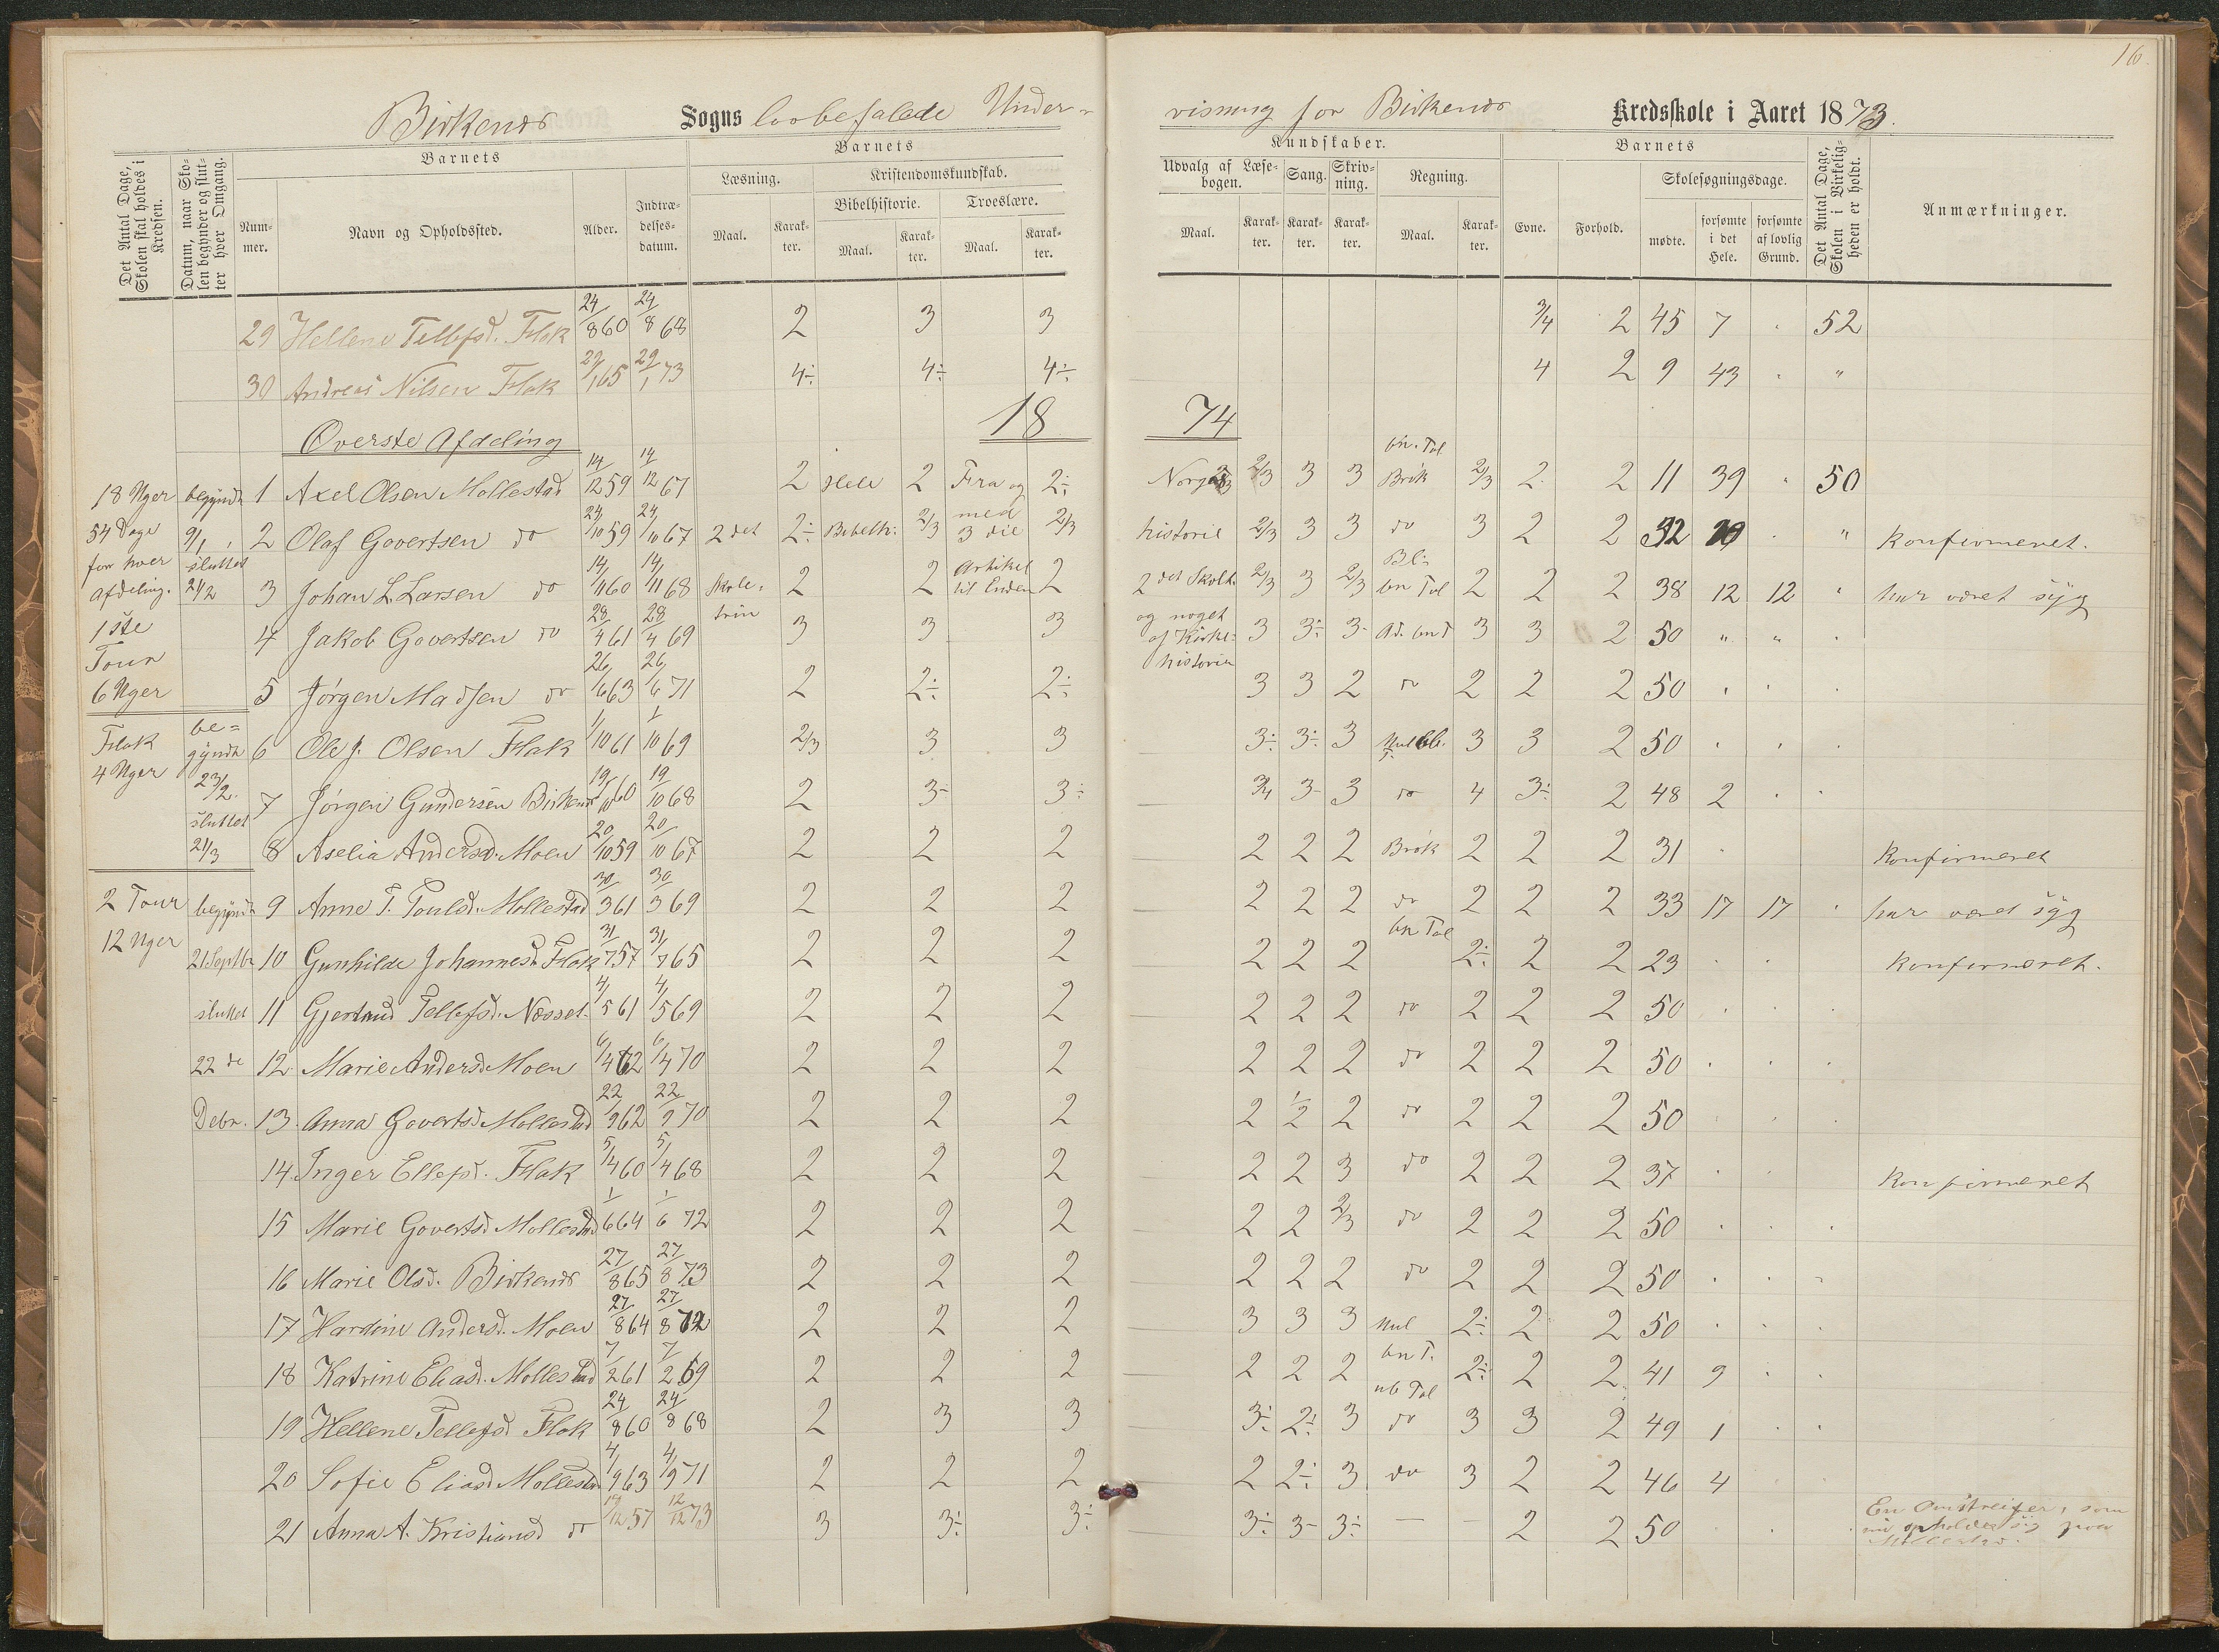 16.
Birkenes Sogns lovbefalede Under- visning for Birkenes Kredsskole i Aaret 1873.
Det Antal Dage, Skolen skal holdes i Kredsen.
Datum, naar Skolen begynder og slutter hver Omgang.
Barnets
Nummer.
Navn og Opholdssted.
Alder.
Indtrædelsesdatum.
Barnets Kundskaber.
Læsning.
Maal.
Karakter.
Kristendomskundskab.
Bibelhistorie.
Maal.
Karakter.
Troeslære.
Maal.
Karakter.
Udvalg af Læsebogen.
Maal.
Karakter.
Sang.
Karakter.
Skrivning.
Karakter.
Regning.
Maal.
Karakter.
Barnets
Evne.
Forhold.
Skolesøgningsdage.
mødte.
forsømte i det Hele.
forsømte af lovlig Grund.
Det Antal Dage, Skolen i Virkeligheden er holdt.
Anmærkninger.
29 Hellene Tellefsd. Flak 24/8 60 24/8 68 2 3 3 3/4 2 45 7 . 52
30 Andreas Nilsen Flak 29/1 65 29/1 73 4÷ 4÷ 4÷ 4 2 9 43 . "
Øverste Afdeling 18 74
18 Uger begyndt 1 Axel Olsen Mollestad 14/12 59 14/12 67 2 Hele 2 Fra og 2÷ Norges 2/3 3 3 bn. Tal Brøk 2/3 2 2 11 39 . 50
54 Dage 9/1 2 Olaf Govertsen do 24/10 59 24/10 67 2 det 2÷ Bibelh: 2/3 med 3 die 2/3 historie 2/3 3 3 do 3 2 2 32 " konfirmeret.
for hver sluttet
afdeling. 21/2 3 Johan L. Larsen do 14/11 60 14/11 68 Skole. 2 2 Artikel til Enden 2 2 det Skolt. 2/3 3 2/3 bn Tal 2 2 2 38 12 12 " har været syg
1ste 4 Jakob Govertsen do 28/4 61 28/4 69 trin 3 3 3 og noget af Kirke- 3 3÷ 3- Ad. bn T 3 3 2 50 " " .
Tour historien
6 Uger 5 Jørgen Madsen do 26/6 63 26/6 71 2 2÷ 2÷ 3 3 2 do 2 2 2 50 . . .
Flak be=
4 Uger gyndt 6 Ole J. Olsen Flak 1/10 61 1/10 69 2/3 3 3 3÷ 3÷ 3 3 3 2 50 . . .
23/2. 7 Jørgen Gundersen Birkenes 19/10 60 19/10 68 2 3- 3÷ 3/4 3- 3 do 4 3÷ 2 48 2 . .
sluttet
21/3 8 Aselia Andersd. Moen 20/10 59 20/10 67 2 2 2 2 2 2 Brøk 2 2 2 31 . konfirmeret
2 Tour begyndt 9 Anne T. Toulsd. Mollestad 30/3 61 30/3 69 2 2 2 2 2 2 do 2 2 2 33 17 17 . har været syg
12 Uger 21 Septbr 10 Gunhilde Johannesd. Flak 31/7 57 31/7 65 2 2 2 2 2 2 bn Tal 2÷ 2 2 23 . . konfirmeret.
sluttet 11 Gjertrud Tellefsd. Næsset. 4/5 61 4/5 69 2 2 2 2 2 2 do 2 2 2 50 . . .
22 de 12 Marie Andersd. Moen 6/4 62 6/4 70 2 2 2 2 2 2 do 2 2 2 50 . . .
Debr. 13. Anna Govertsd. Mollestad 22/9 62 22/9 70 2 2 2 2 1/2 2 do 2 2 2 50 . . .
14. Inger Ellefsd. Flak 5/4 60 5/4 68 2 2 2 2 2 3 do 2 2 2 37 . . konfirmeret
15 Marie Govertsd Mollestad 1/6 64 1/6 72 2 2 2 2 2 2/3 do 2 2 2 50 . . .
16 Marie Olsd. Birkenes 27/8 65 27/8 73 2 2 2 2 2 2 do 2 2 2 50 . . .
17 Hardine Andersd. Moen 27/8 64 27/8 72 2 2 2 3 3 3 Mul 2÷ 2 2 50 . . .
18 Katrine Eliasd. Mollestad 7/2 61 7/2 69 2 2 2 2 2 2 bn T. 2÷ 2 2 41 9 . .
19 Hellene Tellefsd Flak 24/8 60 24/8 68 2 3 3 3÷ 2÷ 3 ub Tal do 3 3 2 49 1 . .
20 Sofie Eliasd Mollestad 4/9 63 4/9 71 2 2 2 2 2÷ 3 do 3 2 2 46 4
21 Anna A. Kristiansd do 19/12 57 12/12 73 3 3÷ 3÷ 3÷ 3- 3÷ — — 2 2 50 . . . En Omstreifer, som
nu opholder sig paa
Mollestad.